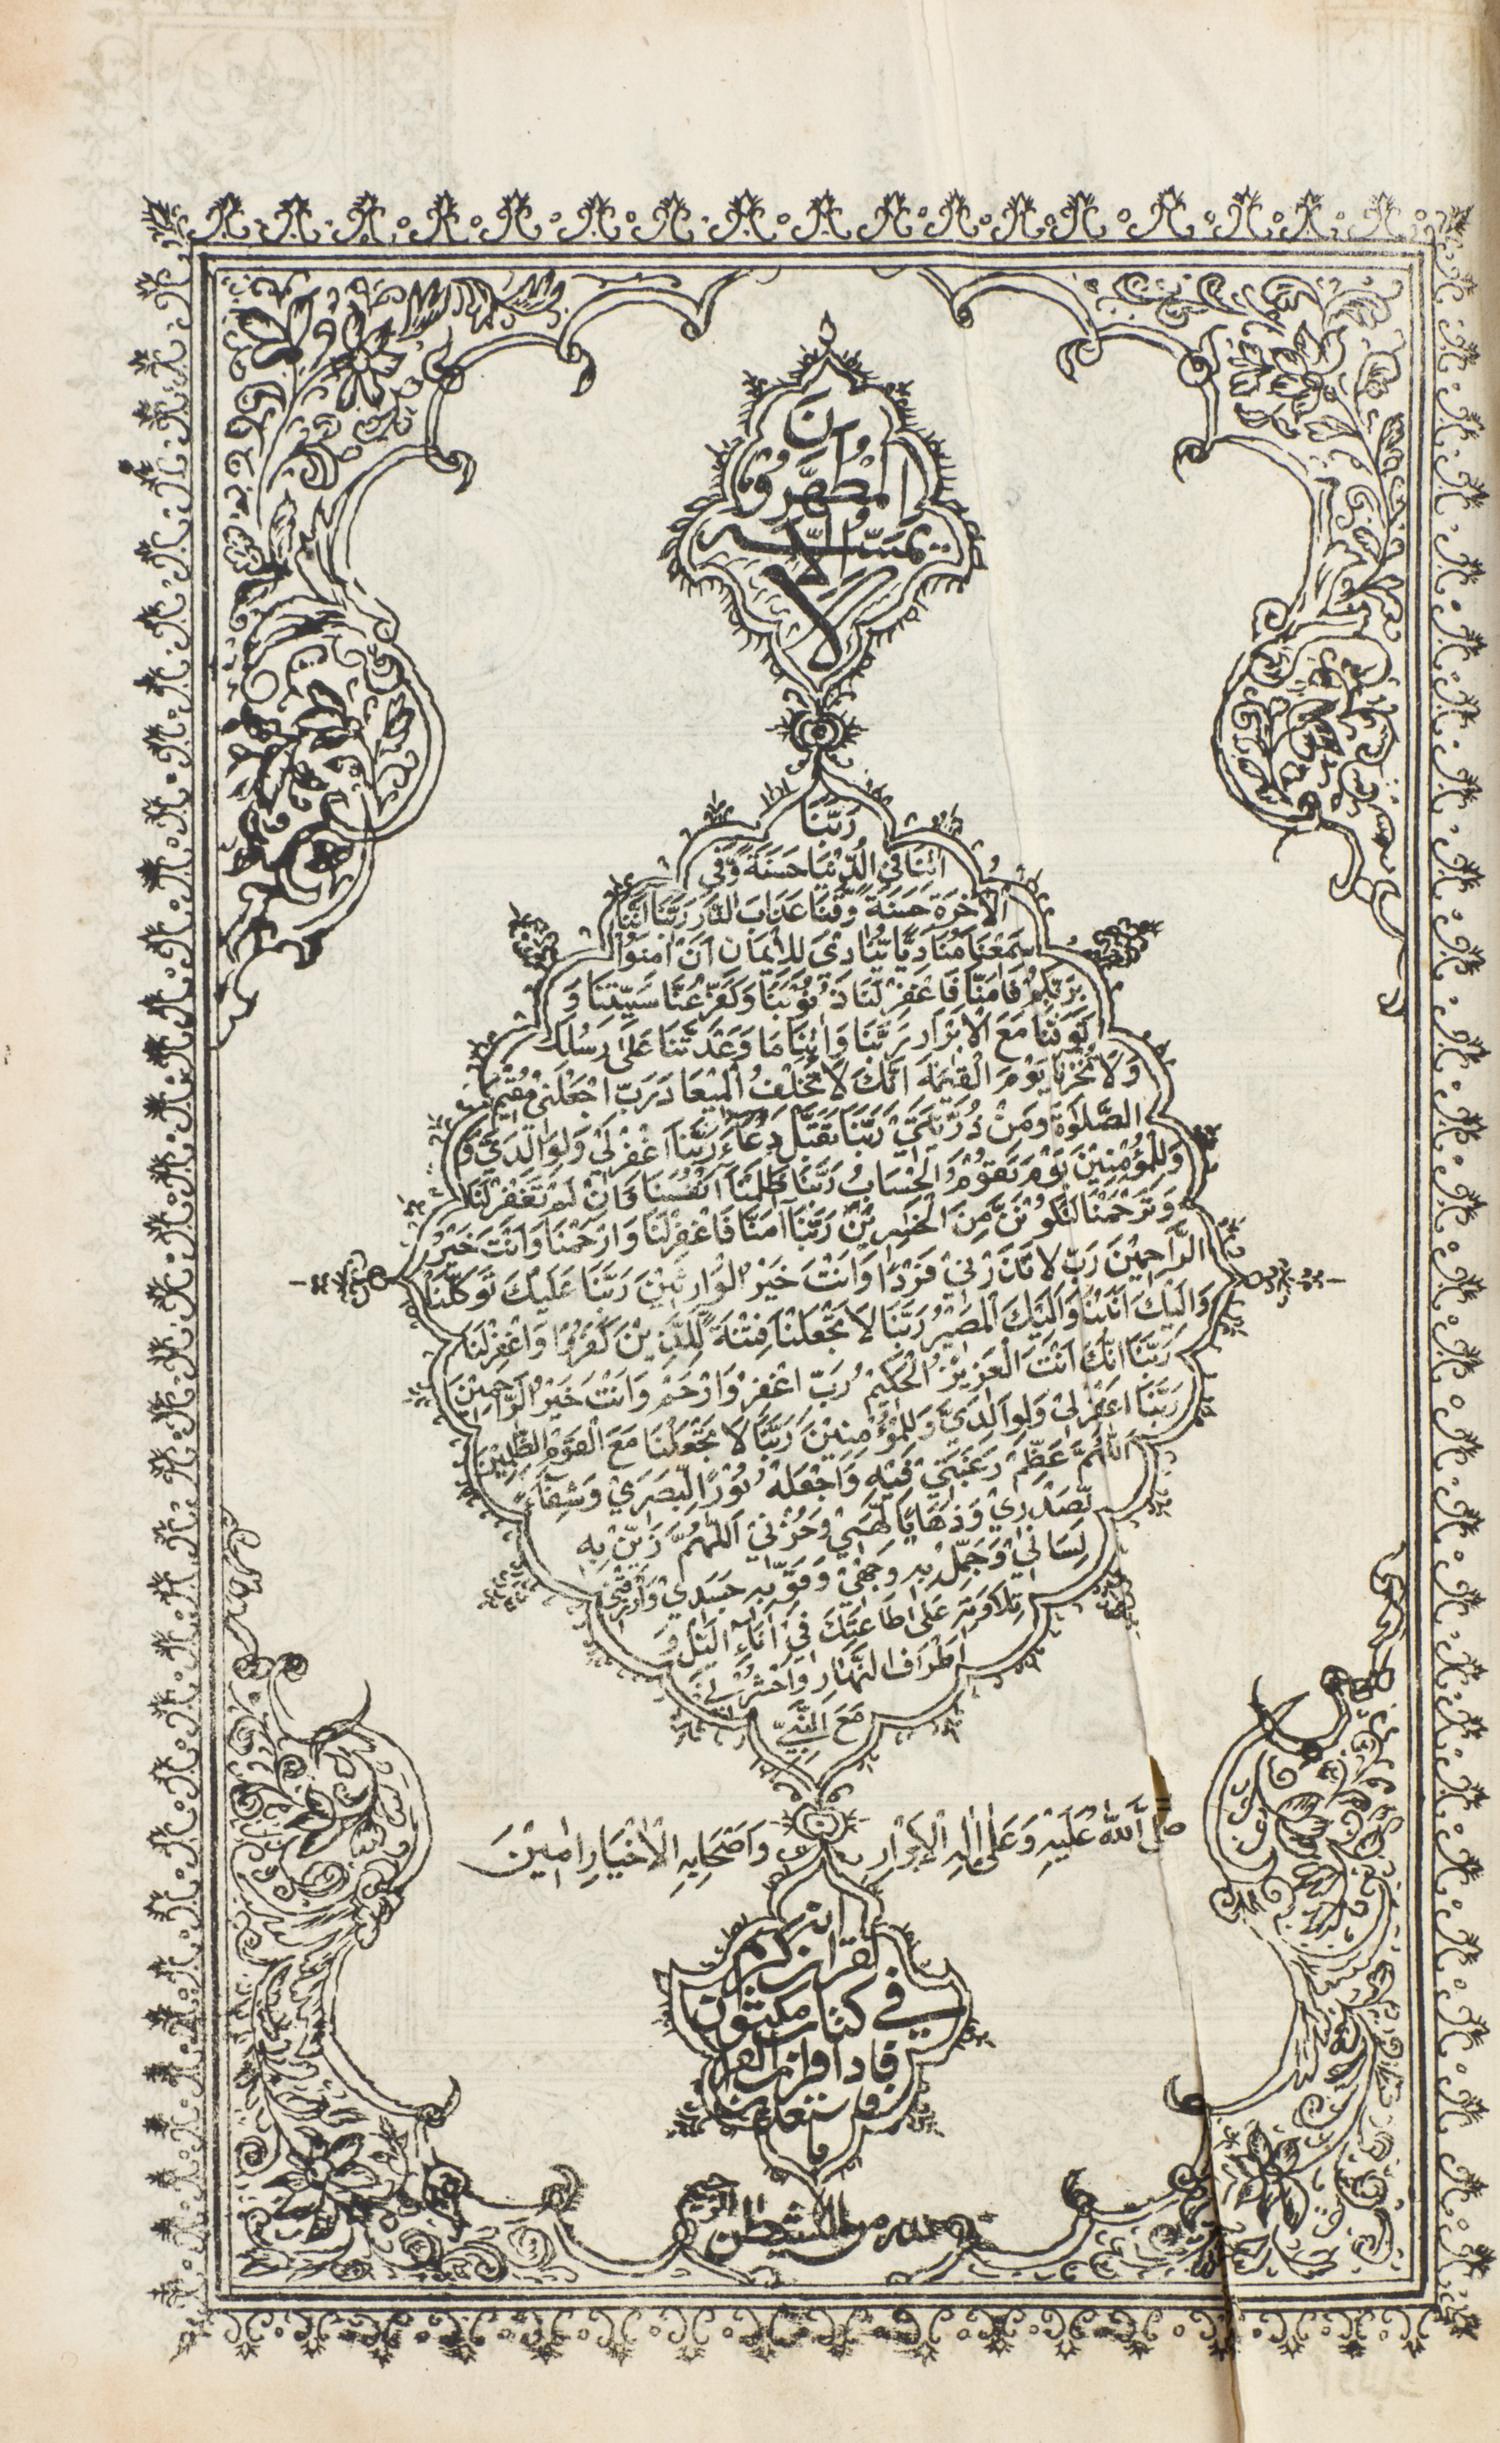 لا
يمسه الا
المطهرون
رَبَّنَا
اٰتِنَا فِي الدُّنْيَا حَسَنَةً وَّفِي
الْاٰخِرَةِ حَسَنَةً وَّقِنَا عَذَابَ النَّارِ رَبَّنَا اِنَّنَا
سَمِعْنَا مُنَادِيًا يُّنَادِيْ لِلْاِيْمَانِ اَنْ اٰمِنُوْا
بِرَبِّكُمْ فَاٰمَنَّا فَاغْفِرْ لَنَا ذُنُوْبَنَا وَكَفِّرْ عَنَّا سَيِّئٰتِنَا وَ
تَوَفَّنَا مَعَ الْاَبْرَارِ رَبَّنَا وَاٰتِنَا مَا وَعَدْتَّنَا عَلٰى رُسُلِكَ
وَلَا تُخْزِنَا يَوْمَ الْقِيٰمَةِ اِنَّكَ لَا تُخْلِفُ الْمِيْعَادَ رَبِّ اجْعَلْنِيْ مُقِيْمَ
الصَّلٰوةِ وَمِنْ ذُرِّيَّتِيْ رَبَّنَا تَقَبَّلْ دُعَاءِ رَبَّنَا اغْفِرْ لِيْ وَلِوَالِدَيَّ وَ
وَلِلْمُؤْمِنِيْنَ يَوْمَ يَقُوْمُ الْحِسَابُ رَبَّنَا ظَلَمْنَا اَنْفُسَنَا وَاِنْ لَمْ تَغْفِرْ لَنَا
وَتَرْحَمْنَا لَنَكُوْنَنَّ مِنَ الْخٰسِرِيْنَ رَبَّنَا اٰمَنَّا فَاغْفِرْ لَنَا وَارْحَمْنَا وَاَنْتَ خَيْرُ
الرَّاحِمِيْنَ رَبِّ لَا تَذَرْنِيْ فَرْدًا وَاَنْتَ خَيْرُ الْوَارِثِيْنَ رَبَّنَا عَلَيْكَ تَوَكَّلْنَا
وَاِلَيْكَ اَنَبْنَا وَاِلَيْكَ الْمَصِيْرُ رَبَّنَا لَا تَجْعَلْنَا فِتْنَةً لِّلَّذِيْنَ كَفَرُوْا وَاغْفِرْ لَنَا
رَبَّنَا اِنَّكَ اَنْتَ الْعَزِيْزُ الْحَكِيْمُ رَبِّ اغْفِرْ وَارْحَمْ وَاَنْتَ خَيْرُ الرَّاحِمِيْنَ
رَبَّنَا اغْفِرْ لِيْ وَلِوَالِدَيَّ وَلِلْمُؤْمِنِيْنَ رَبَّنَا لَا تَجْعَلْنَا مَعَ الْقَوْمِ الظّٰلِمِيْنَ
اَللّٰهُمَّ عَظِّمْ رَغْبَتِيْ فِيْهِ وَاجْعَلْهُ نُوْرًا لِّبَصَرِيْ وَشِفَاءً
لِّصَدْرِيْ وَذَهَابًا لِّهَمِّيْ وَحُزْنِيْ اَللّٰهُمَّ زَيِّنْ بِهِ
لِسَانِيْ وَجَمِّلْ بِهِ وَجْهِيْ وَقَوِّ بِهِ جَسَدِيْ وَارْزُقْنِيْ
تِلَاوَتَهُ عَلٰى طَاعَتِكَ فِيْ اٰنَاءِ الَّيْلِ وَ
اَطْرَافَ النَّهَارِ وَاحْشُرْنِيْ
مَعَ النَّبِيِّ
صَلَّى اللهُ عَلَيْهِ وَعَلٰى اٰلِهِ الْاَبْرَارِ وَاَصْحَابِهِ الْاَخْيَارِ اٰمِيْنَ
انه
لقران كريم
في كتاب مكنون
فاذا قرات القرا
ن فاستعذ
با
لله من الشيطن الرجيم